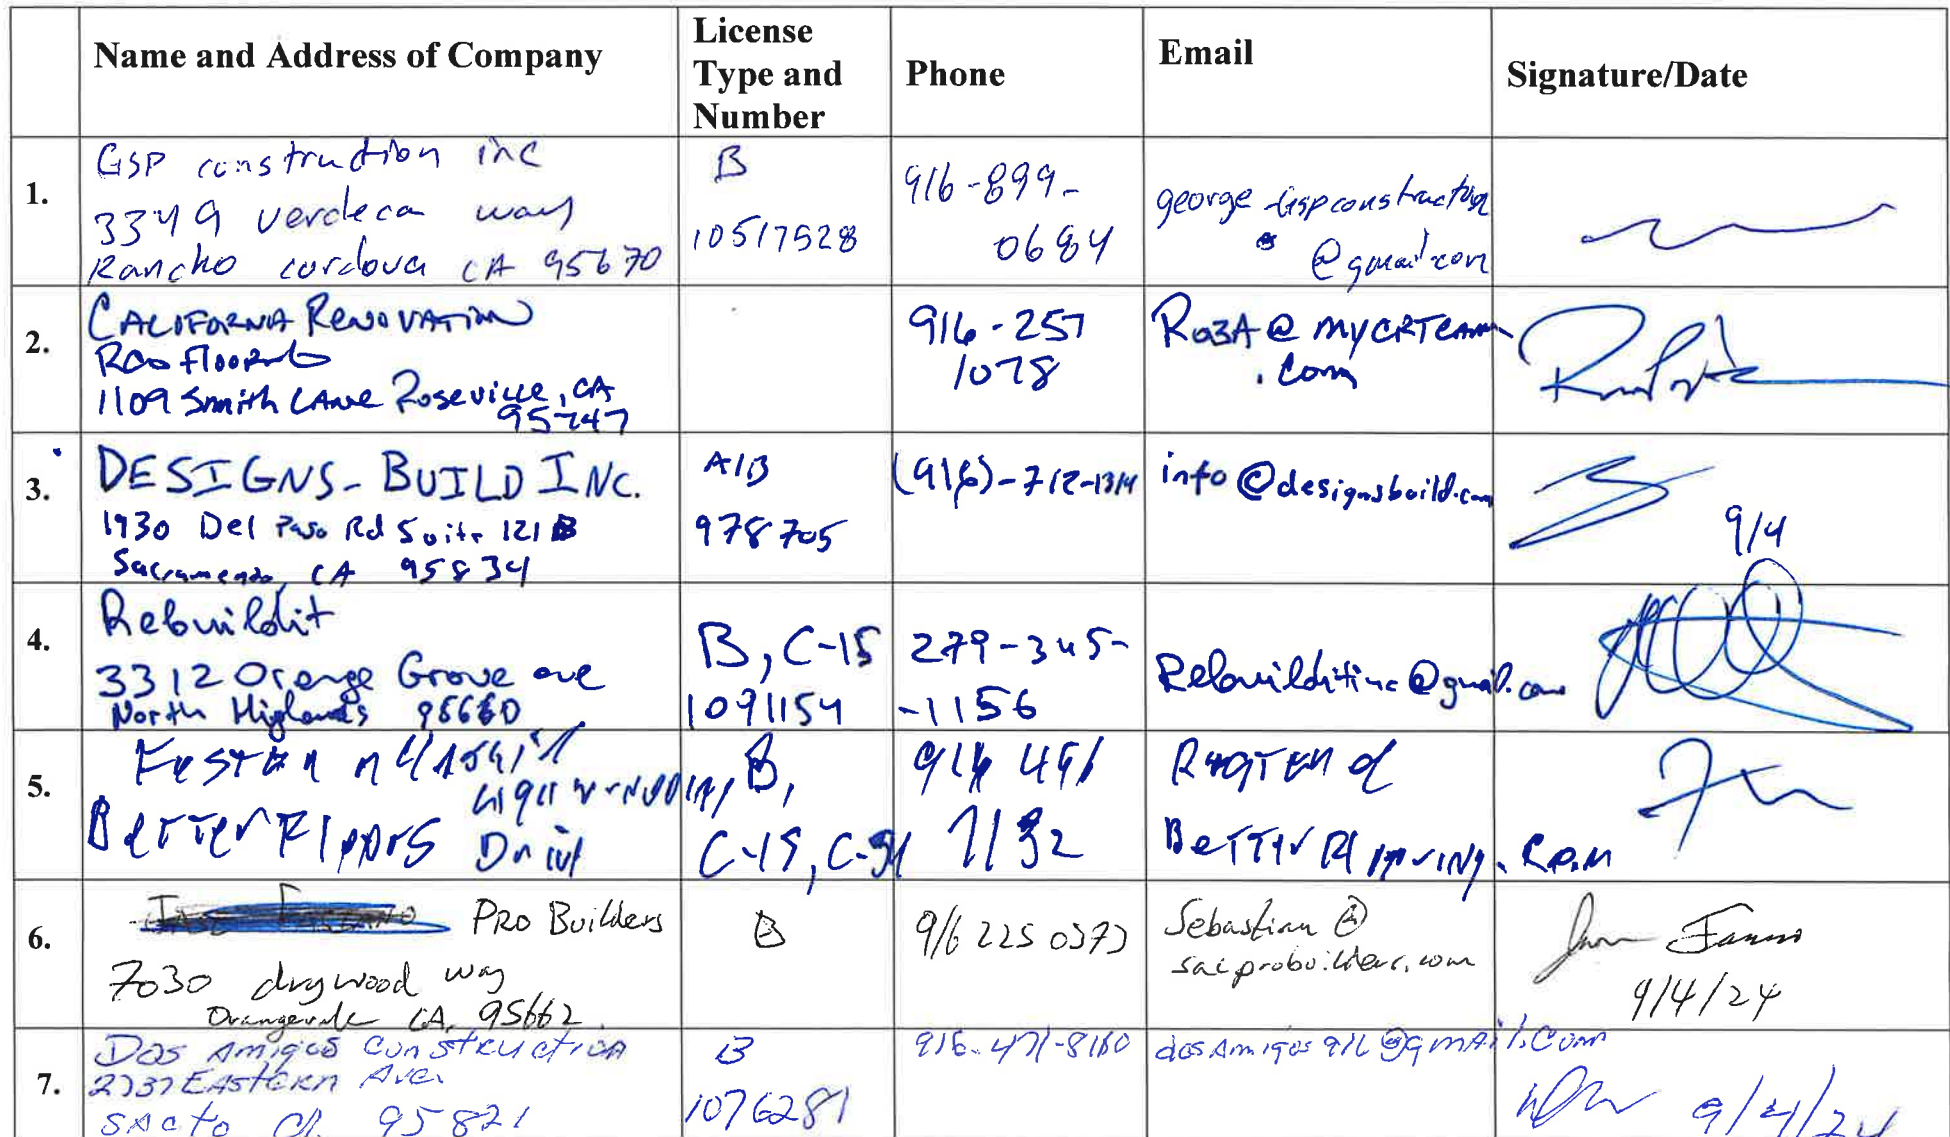 Name and Address of Company
License
Type and
Number
Phone
Email
Signature/Date
1.
GSP construction inc
3349 verdeca way
Rancho cordova CA 95670
B
10517528
916-899-
0684
george-Gspconstruction
@gmail.com
2.
CALIFORNIA RENOVATION
1109 Smith LANE Roseville, CA
95747
916-257
1078
@ MYCRTEAM
.com
3.
DESIGNS-BUILD INC.
1930 Del Paso Rd Suite 121 B
Sacramento, CA 95834
A/B
978705
(916)-712-1314
info@designsbuild.com
9/4
4.
Rebuildit
3312 Orange Grove ave
North Highlands 95660
B, C-15
1091154
279-345-
-1156
Rebuilditinc@gmail.com
5.
BetterFlippers
Drive
B,
C-15, C-
916
6.
PRO Builders
7030 drywood way
Orangevale CA, 95662
B
916 225 0373
Sebastian @
sacprobuilders.com
9/4/24
7.
Dos Amigos Construction
2737 EASTERN Ave.
SACTO CA. 95821
B
1076281
916-471-8160
dosAmigos916@gmail.com
9/4/24